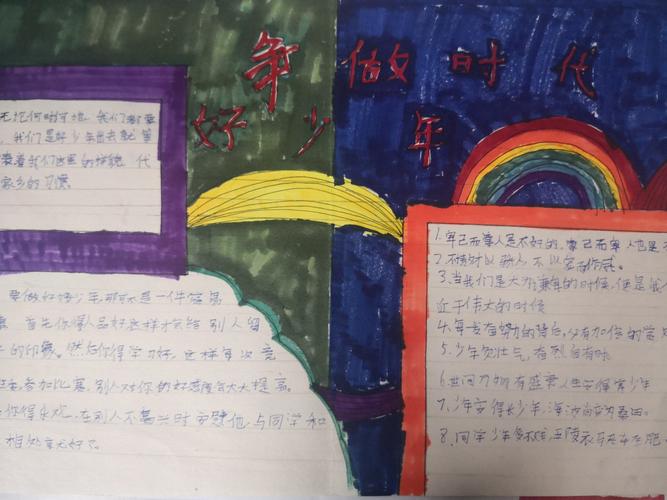 争做时代
好少年
无论何时何地，我们都要
，我们是好少年出去就
着我们这里的样貌 代
家乡的习惯。
要做好好少年，那可不是一件容易
首先你得人品好这样才能给别人留
的印象。然后你得学习好，这样每次竞
参加比赛，别人对你的好感度会大大提高。
你得乐观，在别人不高兴时安慰他，与同学和
相处就好了。
1.卑己而尊人是不好的，尊己而卑人也是不
2.不傲才以骄人，不以宠而作威。
3.当我们是大为谦卑的时候，便是我们
近于伟大的时候
4.
5.少年负壮气，奋烈自有时
6.世间万物有盛衰 人生安得常少年
7.少年安得长少年，海波尚变为桑田。
8.同学少年多不贱，五陵衣马自轻肥